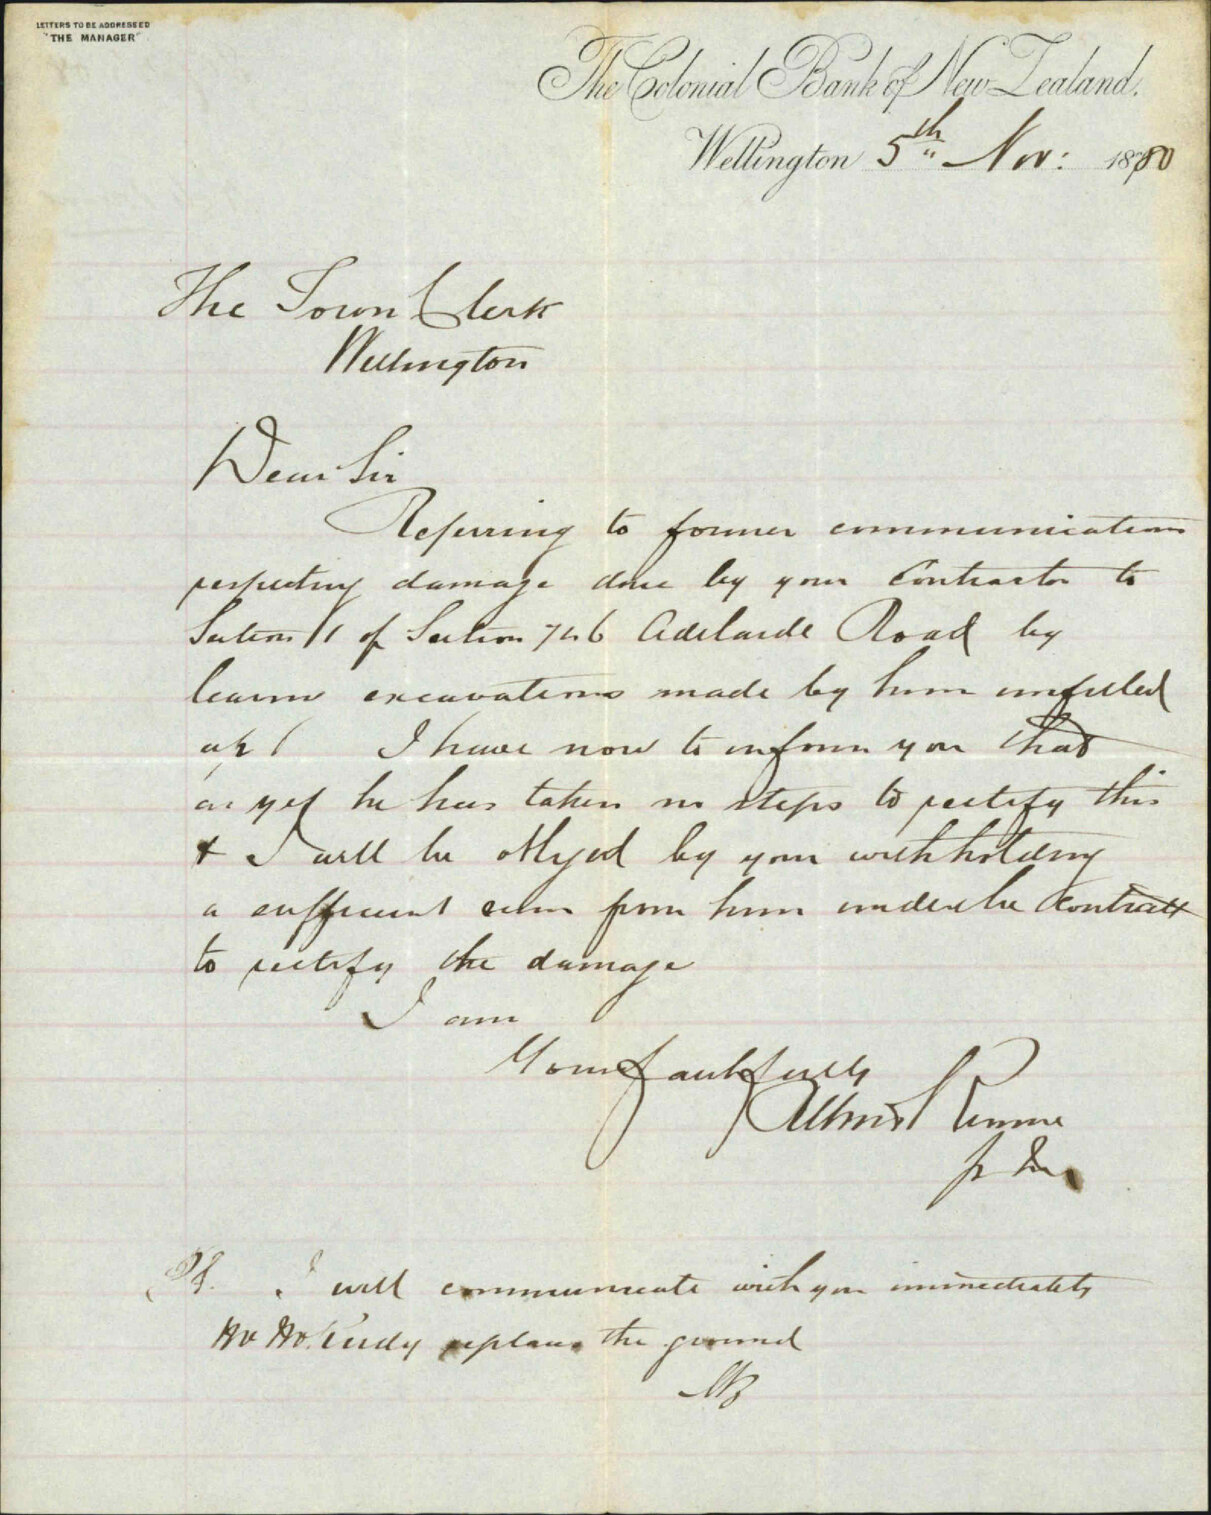 LETTERS TO BE ADDRESSED
"THE MANAGER"
The Colonial Bank of New Zealand.
Wellington 5th Nov: 1880
The Town Clerk
Wellington
Dear Sir
Referring to former communications
respecting damage done by your Contractor to
Section 1 of Section 746 Adelaide Road by
leaving excavations made by him unfilled
up I have now to inform you that
as yet he has taken no steps to rectify this
& I will be obliged by your withholding
a sufficient sum from him under the Contract
to rectify the damage
I am
Yours faithfully
PS. I will communicate with you immediately
replaces the ground